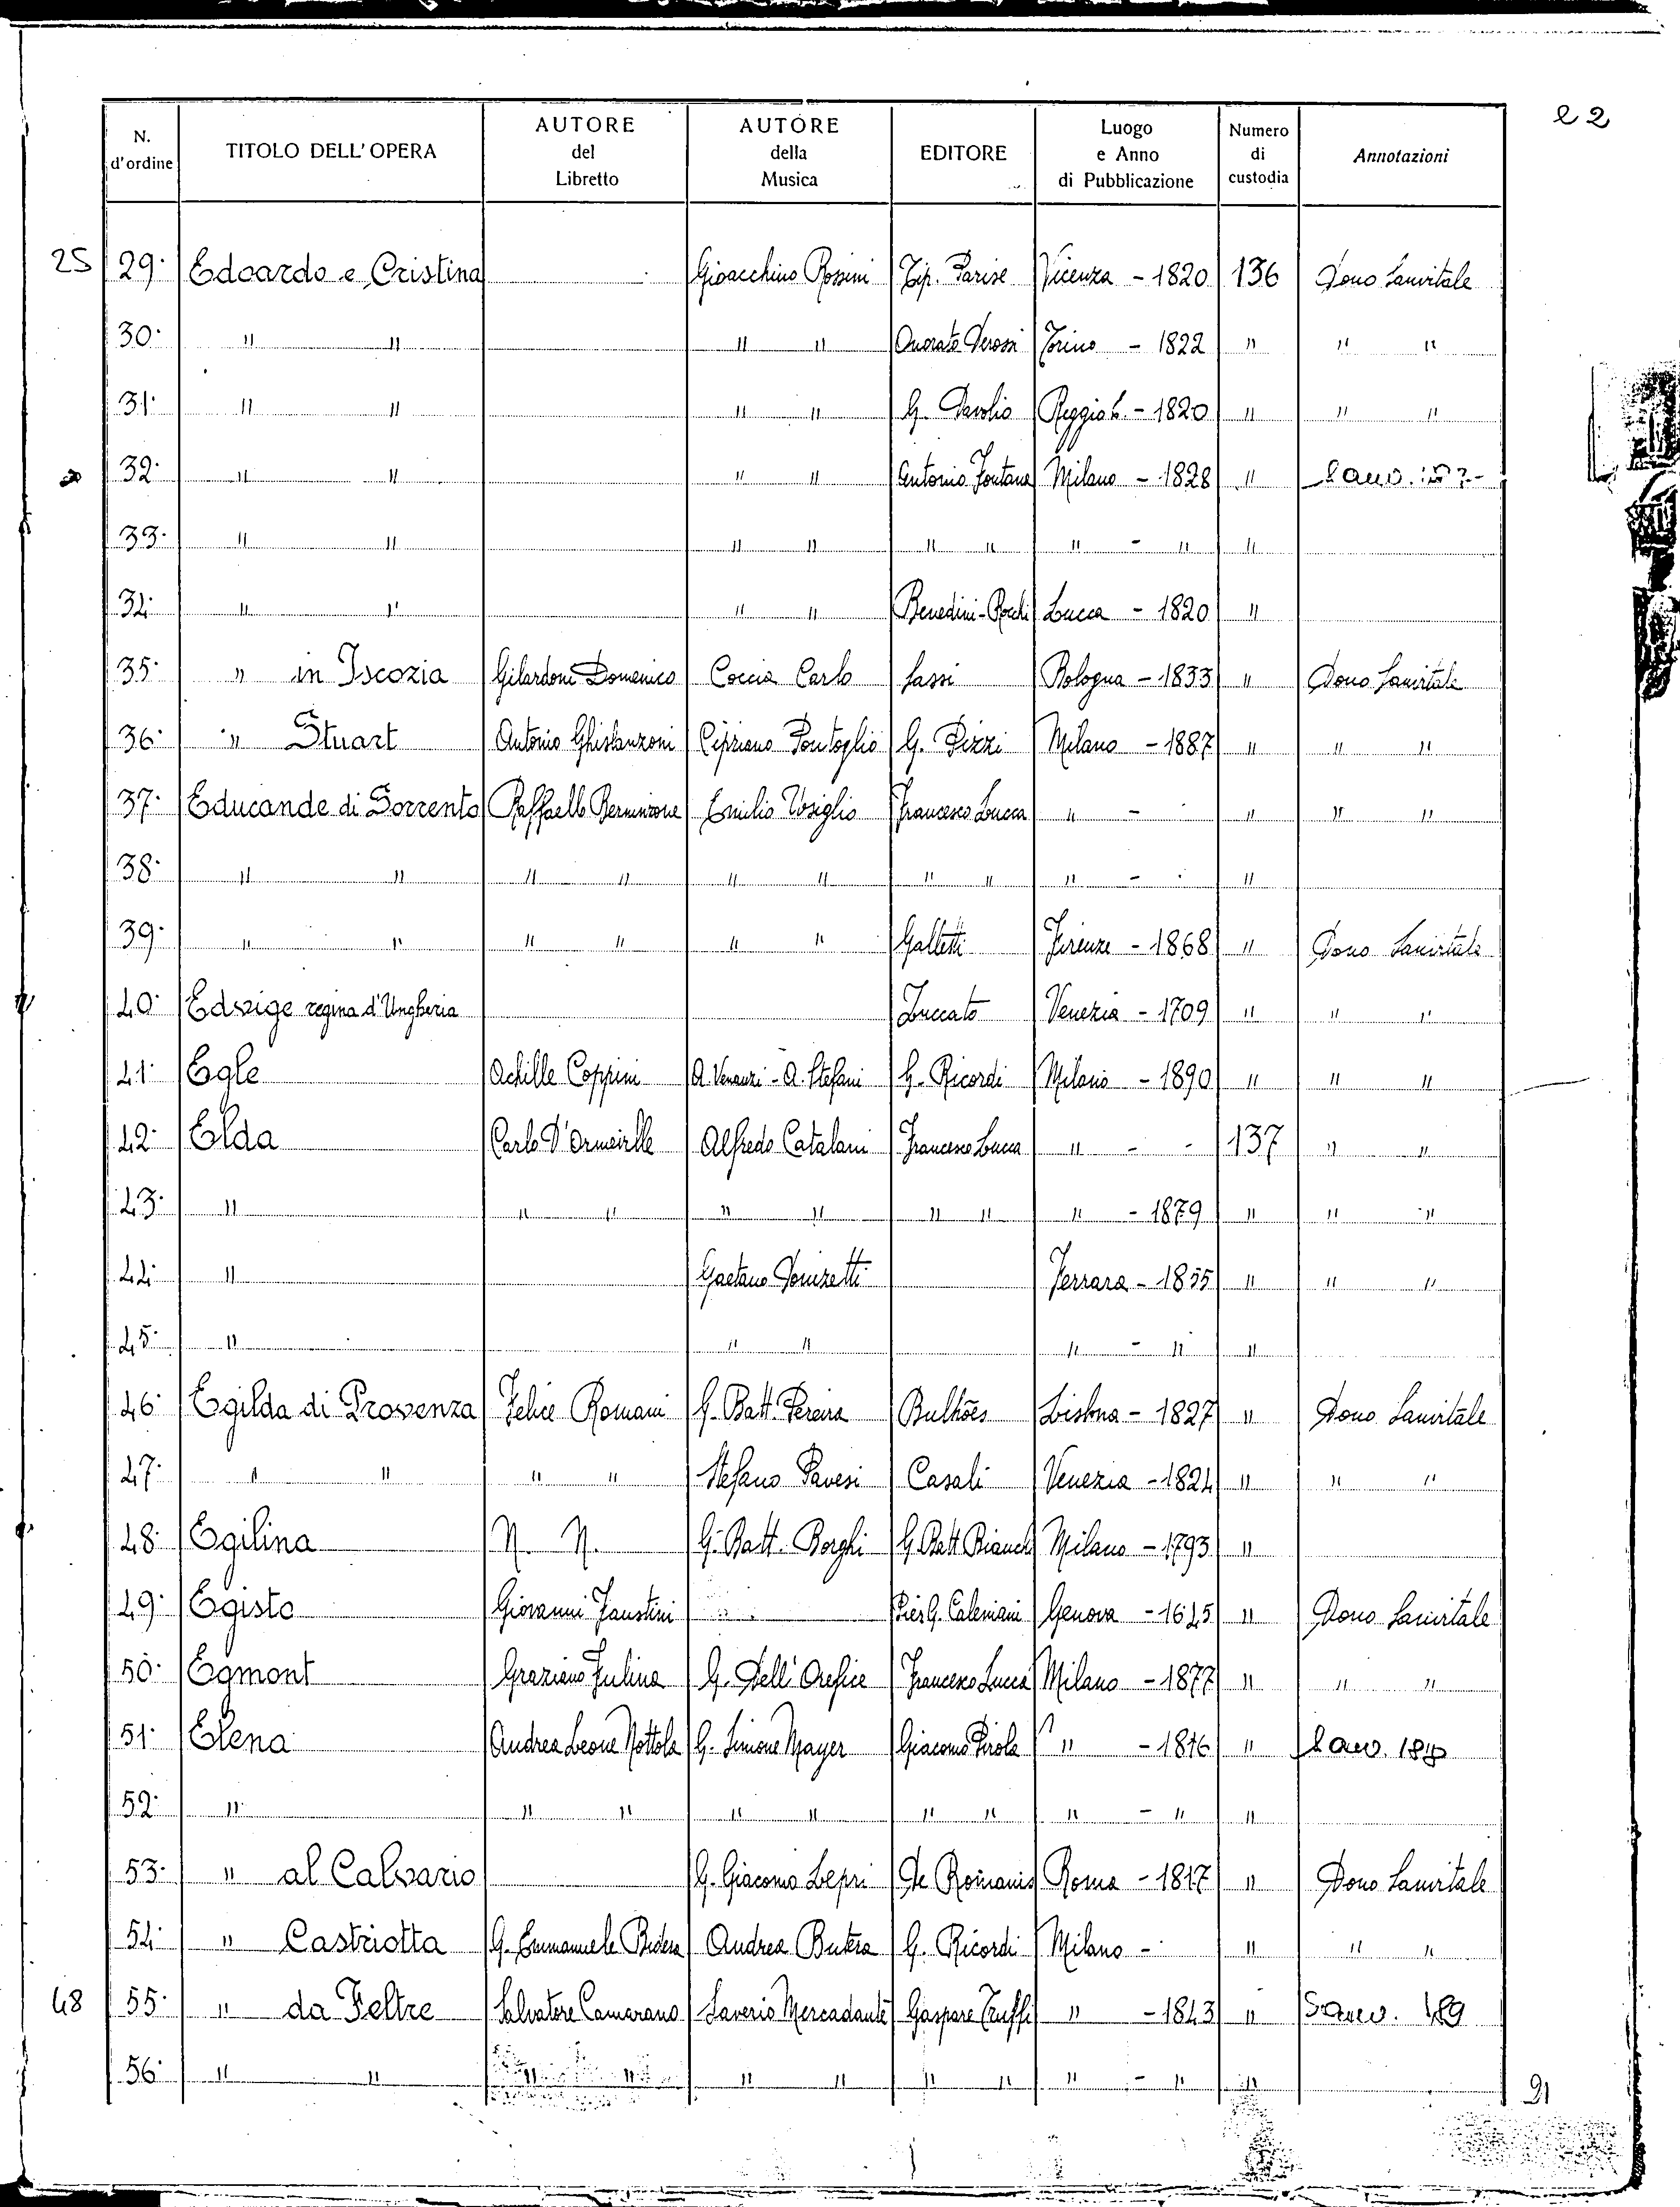 e 2
N. d'ordine | TITOLO DELL'OPERA | AUTORE del Libretto | AUTORE della Musica | EDITORE | Luogo e Anno di Pubblicazione | Numero di custodia | Annotazioni
25 29. Edoardo e Cristina Gioacchino Rossini Tip. Parise Vicenza - 1820 136 Dono Sanvitale
30. " " " " Onorato Derossi Torino - 1822 " " "
31. " " " " G. Davolio Reggio E. - 1820 " " "
32. " " " " Antonio Fontana Milano - 1828 "
33. " " " " " " " - " "
34. " " " " Benedini-Rocchi Lucca - 1820 "
35. " in Iscozia Gilardoni Domenico Coccia Carlo Sassi Bologna - 1833 " Dono Sanvitale
36. " Stuart Antonio Ghislanzoni Cipriano Pontoglio G. Pizzi Milano - 1887 " " "
37. Educande di Sorrento Raffaello Berninzone Emilio Usiglio Francesco Lucca " - " " "
38. " " " " " " " " " - "
39. " " " " " " Galletti Firenze - 1868 " Dono Sanvitale
40. Edvige regina d'Ungheria Zuccato Venezia - 1709 " " "
41. Egle Achille Coppini A. Venanzi - A. Stefani G. Ricordi Milano - 1890 " " "
42. Elda Carlo D'Ormeville Alfredo Catalani Francesco Lucca " - - 137 " "
43. " " " " " " " " - 1879 " " "
44. " Gaetano Donizetti Ferrara - 1855 " " "
45. " " " " - " "
46. Egilda di Provenza Felice Romani G. Batt. Pereira Bulhões Lisbona - 1827 " Dono Sanvitale
47. " " " " Stefano Pavesi Casali Venezia - 1824 " " "
48. Egilina N. N. G. Batt. Borghi G. Batt. Bianchi Milano - 1793 "
49. Egisto Giovanni Faustini Pier G. Calenzani Genova - 1645 " Dono Sanvitale
50. Egmont Graziano Fulina G. Dell'Orefice Francesco Lucca Milano - 1877 " " "
51. Elena Andrea Leone Tottola G. Simone Mayer Giacomo Pirola " - 1816 "
52. " " " " " " " " - " "
53. " al Calvario G. Giacomo Lepri De Romanis Roma - 1817 " Dono Sanvitale
54. " Castriotta G. Emmanuele Bidera Andrea Butera G. Ricordi Milano - " " "
48 55. " da Feltre Salvatore Camarano Saverio Mercadante Gaspare Truffi " - 1843 " Sanv. 189
56. " " " " " " " " " - " "
91